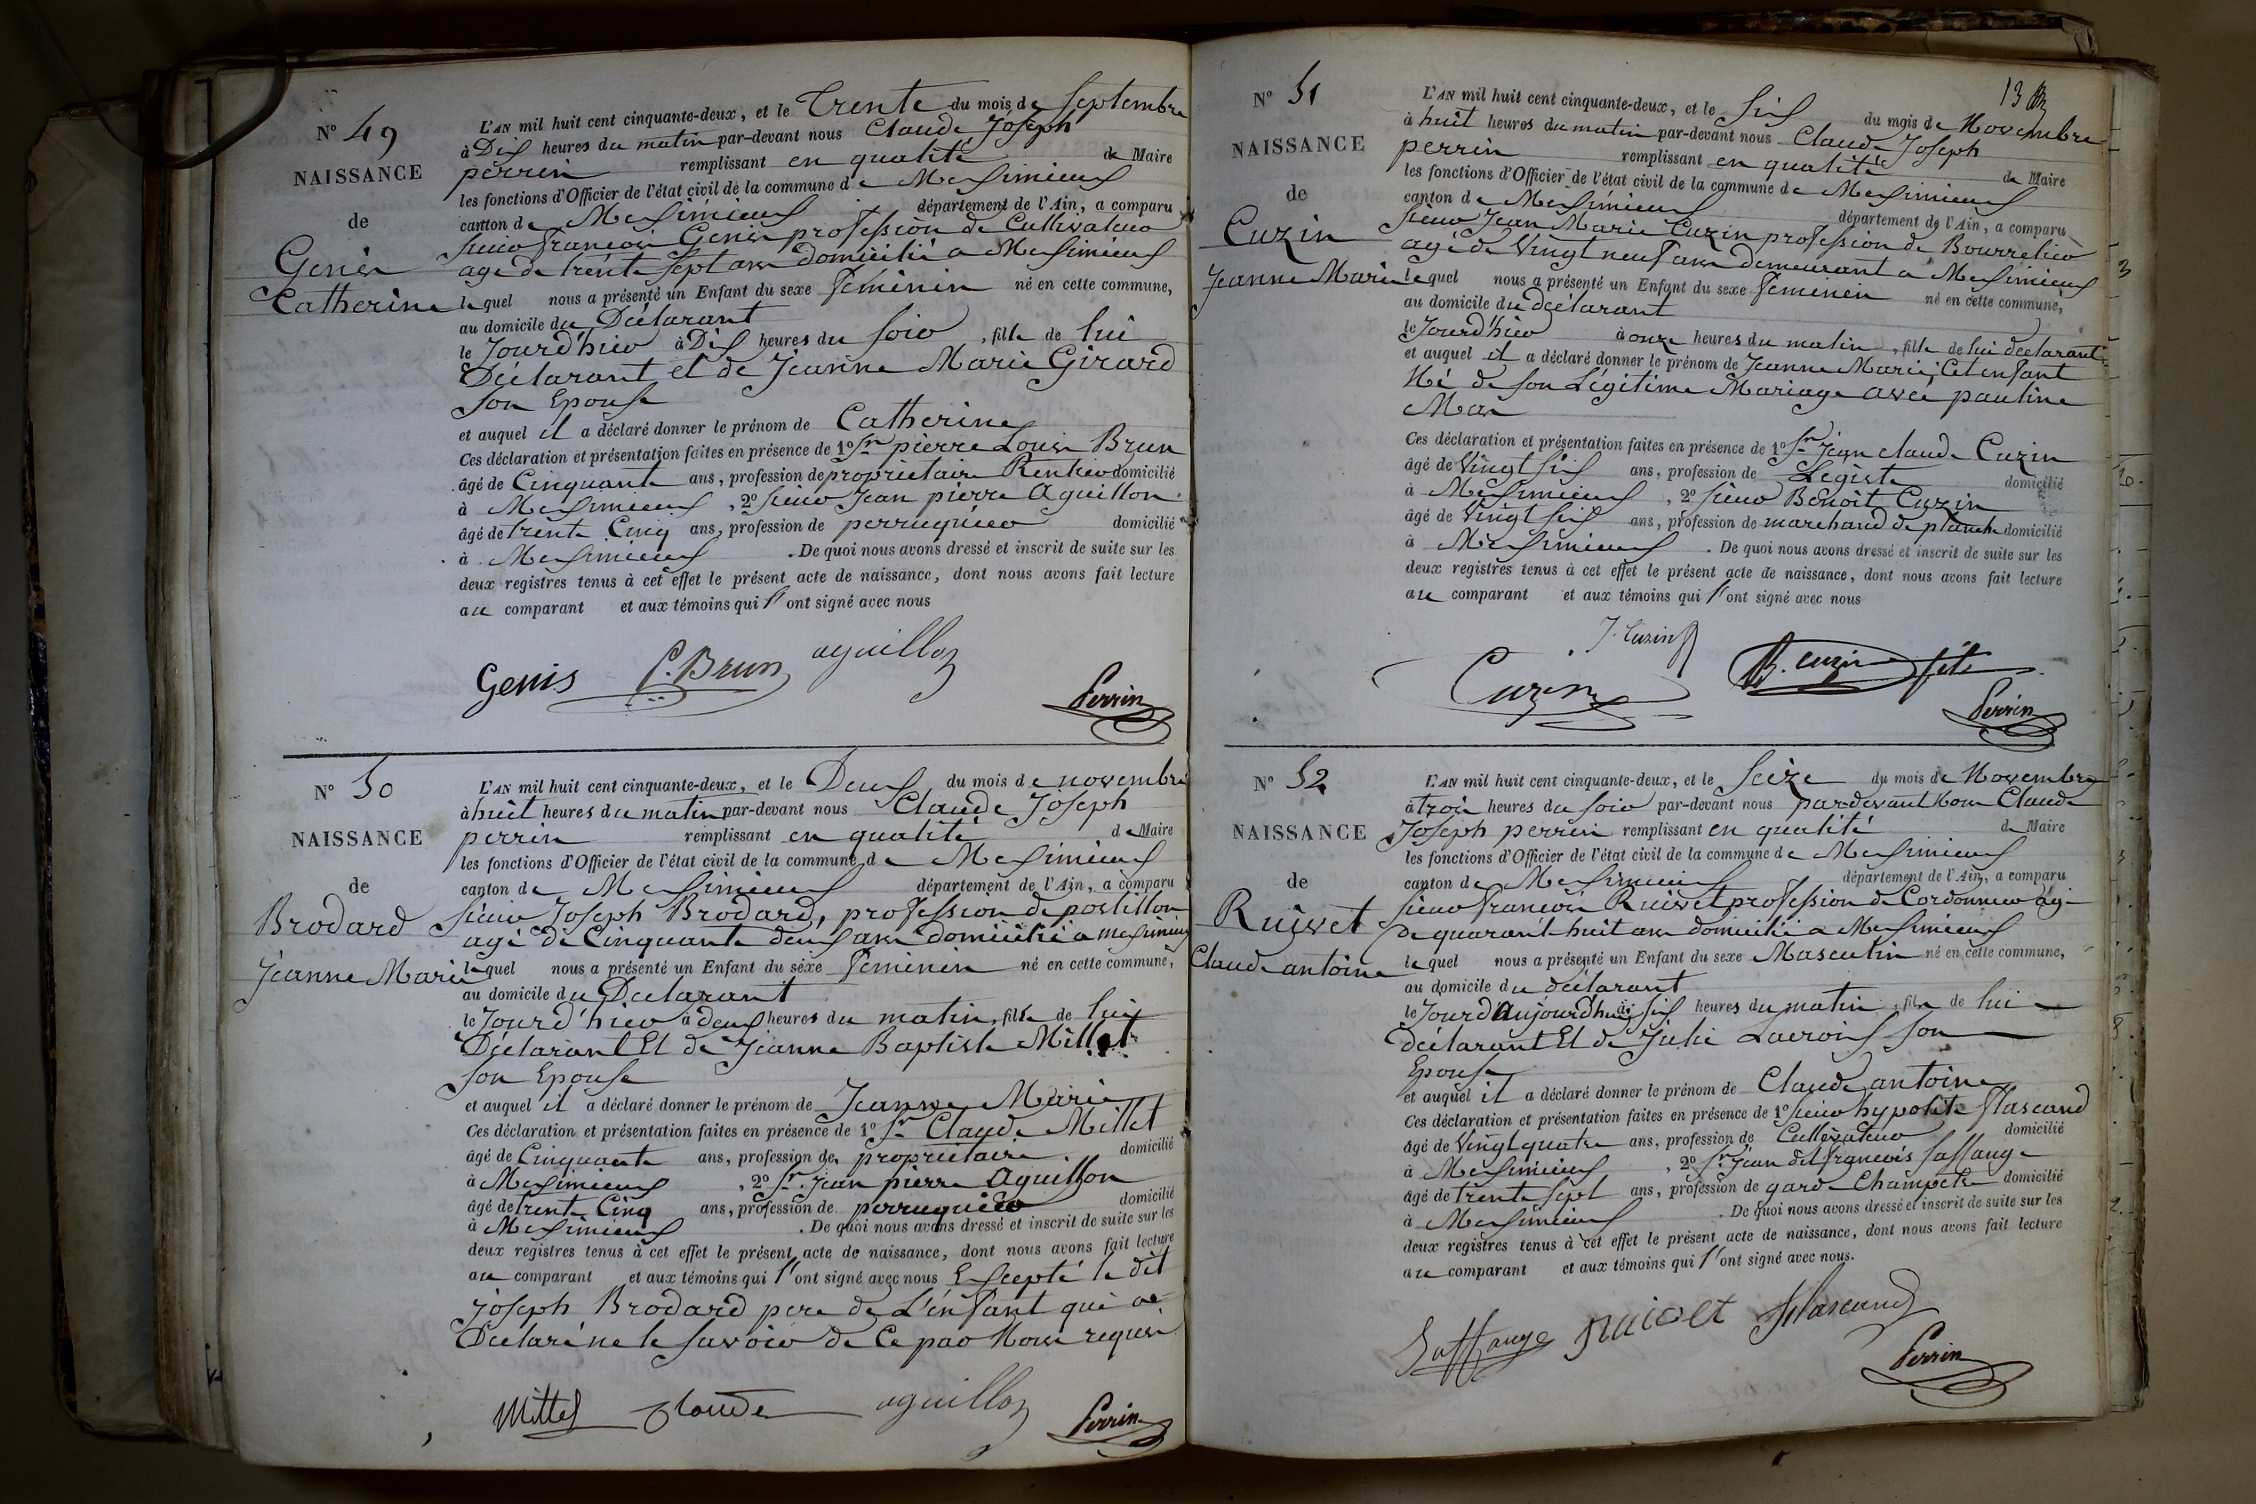 N° 49
NAISSANCE
de
Genis
Catherine
L'AN mil huit cent cinquante-deux, et le Trente du mois de Septembre
à Dix heures du matin par-devant nous Claude Joseph
perrin remplissant en qualité de Maire
les fonctions d'Officier de l'état civil de la commune de Meximieux
canton de Meximieux département de l'Ain, a comparu
Sieur francois Genis profession de Cultivateur
agé de trente sept ans domicilié a Meximieux
lequel nous a présenté un Enfant du sexe féminin né en cette commune,
au domicile du Déclarant
le Jourd'hier à Dix heures du soir, fille de lui
Déclarant et de Jeanne Marie Girard
Son Epouse
et auquel il a déclaré donner le prénom de Catherine
Ces déclaration et présentation faites en présence de 1° Sr pierre Louis Brun
âgé de Cinquante ans, profession de propriétaire Rentier domicilié
à Meximieux, 2° Sieur Jean pierre Aguillon
âgé de trente Cinq ans, profession de perruquier domicilié
à Meximieux. De quoi nous avons dressé et inscrit de suite sur les
deux registres tenus à cet effet le présent acte de naissance, dont nous avons fait lecture
au comparant et aux témoins qui l'ont signé avec nous
Genis P. Brun aguillon
Perrin
N° 50
NAISSANCE
de
Brodard
Jeanne Marie
L'AN mil huit cent cinquante-deux, et le Deux du mois de novembre
à huit heures du matin par-devant nous Claude Joseph
perrin remplissant en qualité de Maire
les fonctions d'Officier de l'état civil de la commune de Meximieux
canton de Meximieux département de l'Ain, a comparu
Sieur Joseph Brodard, profession de postillon
agé de Cinquante deux ans domicilié a meximieux
lequel nous a présenté un Enfant du sexe féminin né en cette commune,
au domicile du Déclarant
le Jourd'hier à deux heures du matin, fille de lui
Déclarant Et de Jeanne Baptiste Millet
Son Epouse
et auquel il a déclaré donner le prénom de Jeanne Marie
Ces déclaration et présentation faites en présence de 1° Sr Claude Millet
âgé de Cinquante ans, profession de propriétaire domicilié
à Meximieux, 2° Sr. Jean pierre Aguillon
âgé de trente Cinq ans, profession de perruquier domicilié
à Meximieux. De quoi nous avons dressé et inscrit de suite sur les
deux registres tenus à cet effet le présent acte de naissance, dont nous avons fait lecture
au comparant et aux témoins qui l'ont signé avec nous Excepté le dit
Joseph Brodard pere de L'enfant qui a
Déclaré ne le savoir de Ce par Nous requis
Millet Claude aguillon Perrin
13
N° 51
NAISSANCE
de
Cuzin
Jeanne Marie
L'AN mil huit cent cinquante-deux, et le Six du mois de Novembre
à huit heures du matin par-devant nous Claude Joseph
perrin remplissant en qualité de Maire
les fonctions d'Officier de l'état civil de la commune de Meximieux
canton de Meximieux département de l'Ain, a comparu
Sieur Jean Marie Cuzin profession de Bourrelier
agé de Vingt neuf ans demeurant a Meximieux
lequel nous a présenté un Enfant du sexe féminin né en cette commune,
au domicile du déclarant
le Jourd'hier à onze heures du matin, fille de lui déclarant
et auquel il a déclaré donner le prénom de Jeanne Marie; Cet enfant
Né de son Légitime Mariage avec pauline
Mas
Ces déclaration et présentation faites en présence de 1° Sr Jean claude Cuzin
âgé de Vingt six ans, profession de Légiste domicilié
à Meximieux, 2° Sieur Benoit Cuzin
âgé de Vingt six ans, profession de marchand de planche domicilié
à Meximieux. De quoi nous avons dressé et inscrit de suite sur les
deux registres tenus à cet effet le présent acte de naissance, dont nous avons fait lecture
au comparant et aux témoins qui l'ont signé avec nous
J. Cuzin
Cuzin B. cuzin fils
Perrin
N° 52
NAISSANCE
de
Ruivet
Claude antoine
L'AN mil huit cent cinquante-deux, et le Seize du mois de Novembre
à trois heures du soir par-devant nous par-devant Nous Claude
Joseph perrin remplissant en qualité de Maire
les fonctions d'Officier de l'état civil de la commune de Meximieux
canton de Meximieux département de l'Ain, a comparu
Sieur francois Ruivet profession de Cordonnier agé
de quarant huit ans domicilié a Meximieux
lequel nous a présenté un Enfant du sexe Masculin né en cette commune,
au domicile du déclarant
le Jourd aujourdhui à six heures du matin, fils de lui
déclarant Et de Julie Lacroix son
Epouse
et auquel il a déclaré donner le prénom de Claude antoine
Ces déclaration et présentation faites en présence de 1° Sieur hypolite Flascaud
âgé de Vingt quatre ans, profession de Cultivateur domicilié
à Meximieux, 2° Sr. Jean dit francois Saffange
âgé de trente sept ans, profession de garde Champetre domicilié
à Meximieux. De quoi nous avons dressé et inscrit de suite sur les
deux registres tenus à cet effet le présent acte de naissance, dont nous avons fait lecture
au comparant et aux témoins qui l'ont signé avec nous.
Saffange Ruivet Flascaud
Perrin